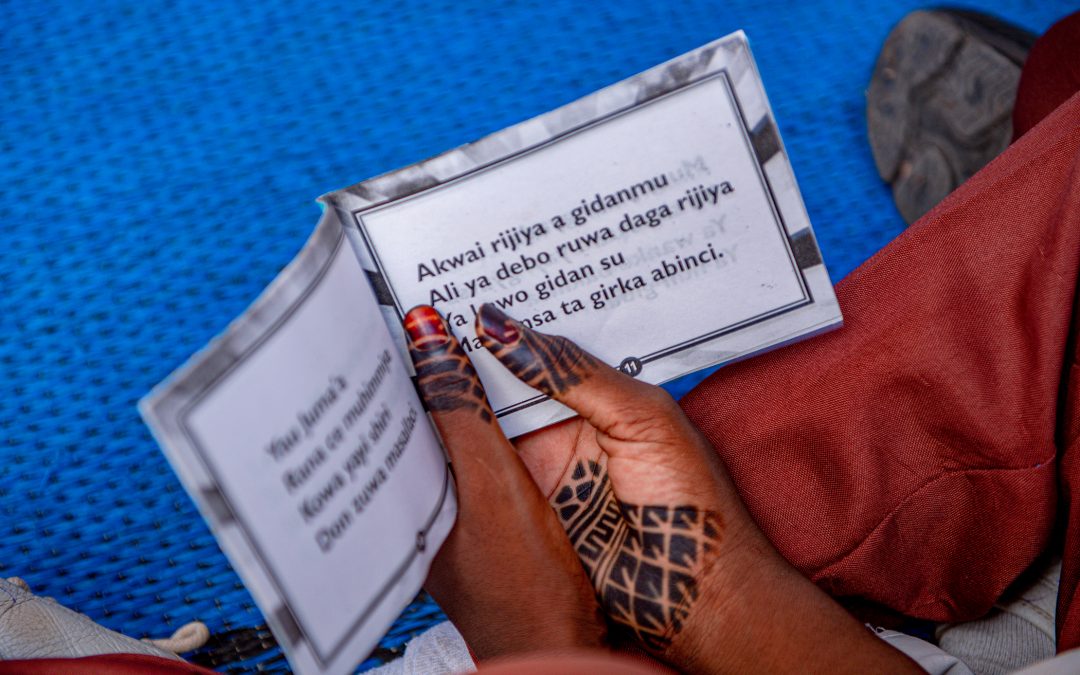 Yau Juma'a
Rana ce muhimmiya
Kowa yayi shiri
Don zuwa masallaci
Akwai rijiya a gidanmu
Ali ya debo ruwa daga rijiya
Ya kawo gidan su
ta girka abinci.
11